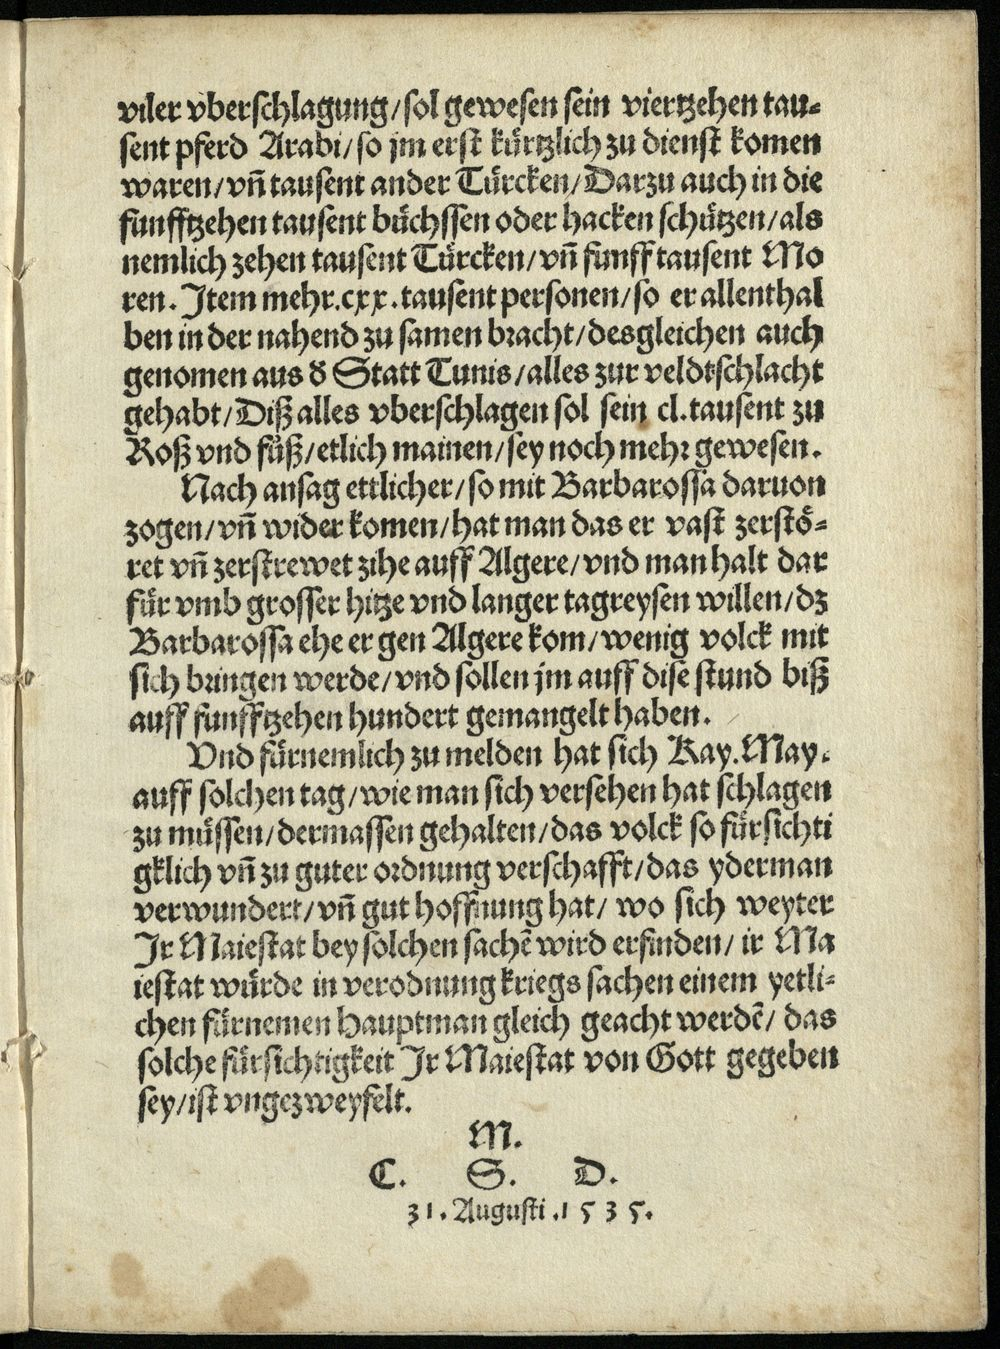 viler vberschlagung/sol gewesen sein viertzehen tau-
sent pferd Arabi/so jm erst kürtzlich zu dienst komen
waren/vñ tausent ander Türcken/Darzu auch in die
funfftzehen tausent büchssen oder hacken schützen/als
nemlich zehen tausent Türcken/vñ funff tausent Mo
ren. Item mehr.cxx.tausent personen/so er allenthal
ben in der nahend zu samen bracht/desgleichen auch
genomen aus ď Statt Tunis/alles zur veldtschlacht
gehabt/Diß alles vberschlagen sol sein cl.tausent zu
Roß vnd fůß/etlich mainen/sey noch mehr gewesen.
Nach ansag ettlicher/so mit Barbarossa daruon
zogen/vñ wider komen/hat man das er vast zerstö-
ret vñ zerstrewet zihe auff Algere/vnd man halt dar
für vmb grosser hitze vnd langer tagreysen willen/dz
Barbarossa ehe er gen Algere kom/wenig volck mit
sich bringen werde/vnd sollen jm auff dise stund biß
auff funfftzehen hundert gemangelt haben.
Vnd fürnemlich zu melden hat sich Kay.May.
auff solchen tag/wie man sich versehen hat schlagen
zu müssen/dermassen gehalten/das volck so fürsichti
gklich vñ zu guter ordnung verschafft/das yderman
verwundert/vñ gut hoffnung hat/ wo sich weyter
Ir Maiestat bey solchen sachē wird erfinden/ ir Ma
iestat würde in verodnung kriegs sachen einem yetli-
chen fürnemen Hauptman gleich geacht werdē/ das
solche fürsichtigkeit Ir Maiestat von Gott gegeben
sey/ist vngezweyfelt.
M.
C. S. D.
31. Augusti .1535.